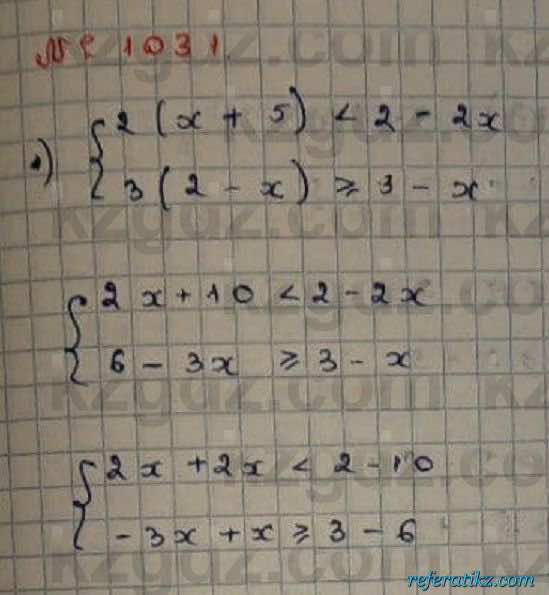 № 1031
1) { 2(x + 5) < 2 - 2x
3(2 - x) ≥ 3 - x
{ 2x + 10 < 2 - 2x
6 - 3x ≥ 3 - x
{ 2x + 2x < 2 - 10
-3x + x ≥ 3 - 6
kzgdz.com
referatikz.com